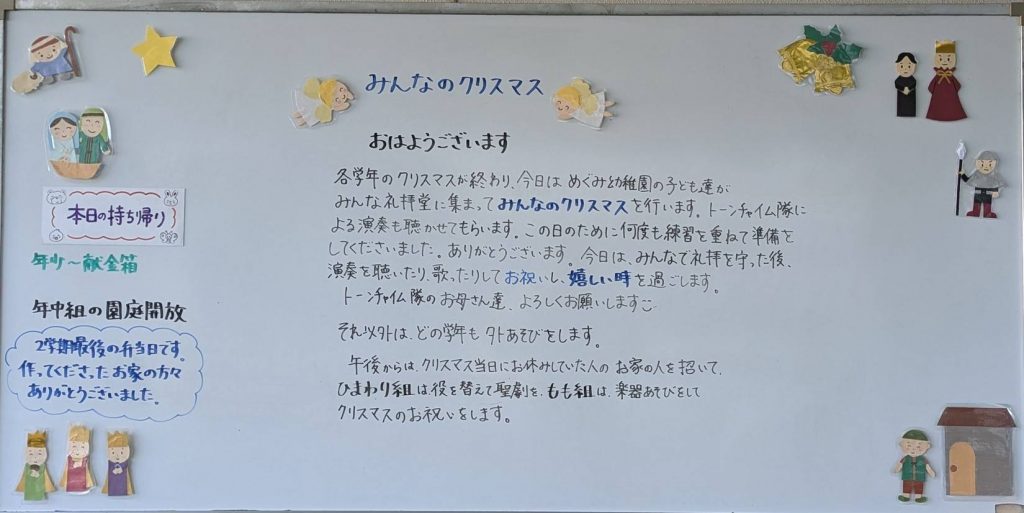 みんなのクリスマス
おはようございます
各学年のクリスマスが終わり、今日は めぐみ幼稚園の子ども達が
みんな礼拝堂に集まってみんなのクリスマスを行います。トーンチャイム隊に
よる演奏も聴かせてもらいます。この日のために何度も練習を重ねて準備を
してくださいました。ありがとうございます。今日は、みんなで礼拝を守った後、
演奏を聴いたり、歌ったりしてお祝いし、嬉しい時を過ごします。
トーンチャイム隊のお母さん達、よろしくお願いします
それ以外は、どの学年も外あそびをします。
午後からは、クリスマス当日にお休みしていた人の お家の人を招いて、
ひまわり組は役を替えて聖劇を、もも組は、楽器あそびをして
クリスマスのお祝いをします。
本日の持ち帰り
年少〜献金箱
年中組の園庭開放
2学期最後の弁当日です。
作ってくださったお家の方々
ありがとうございました。